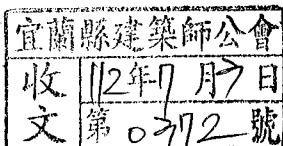 宜蘭縣建築師公會
收文
112年7月7日
第0372號